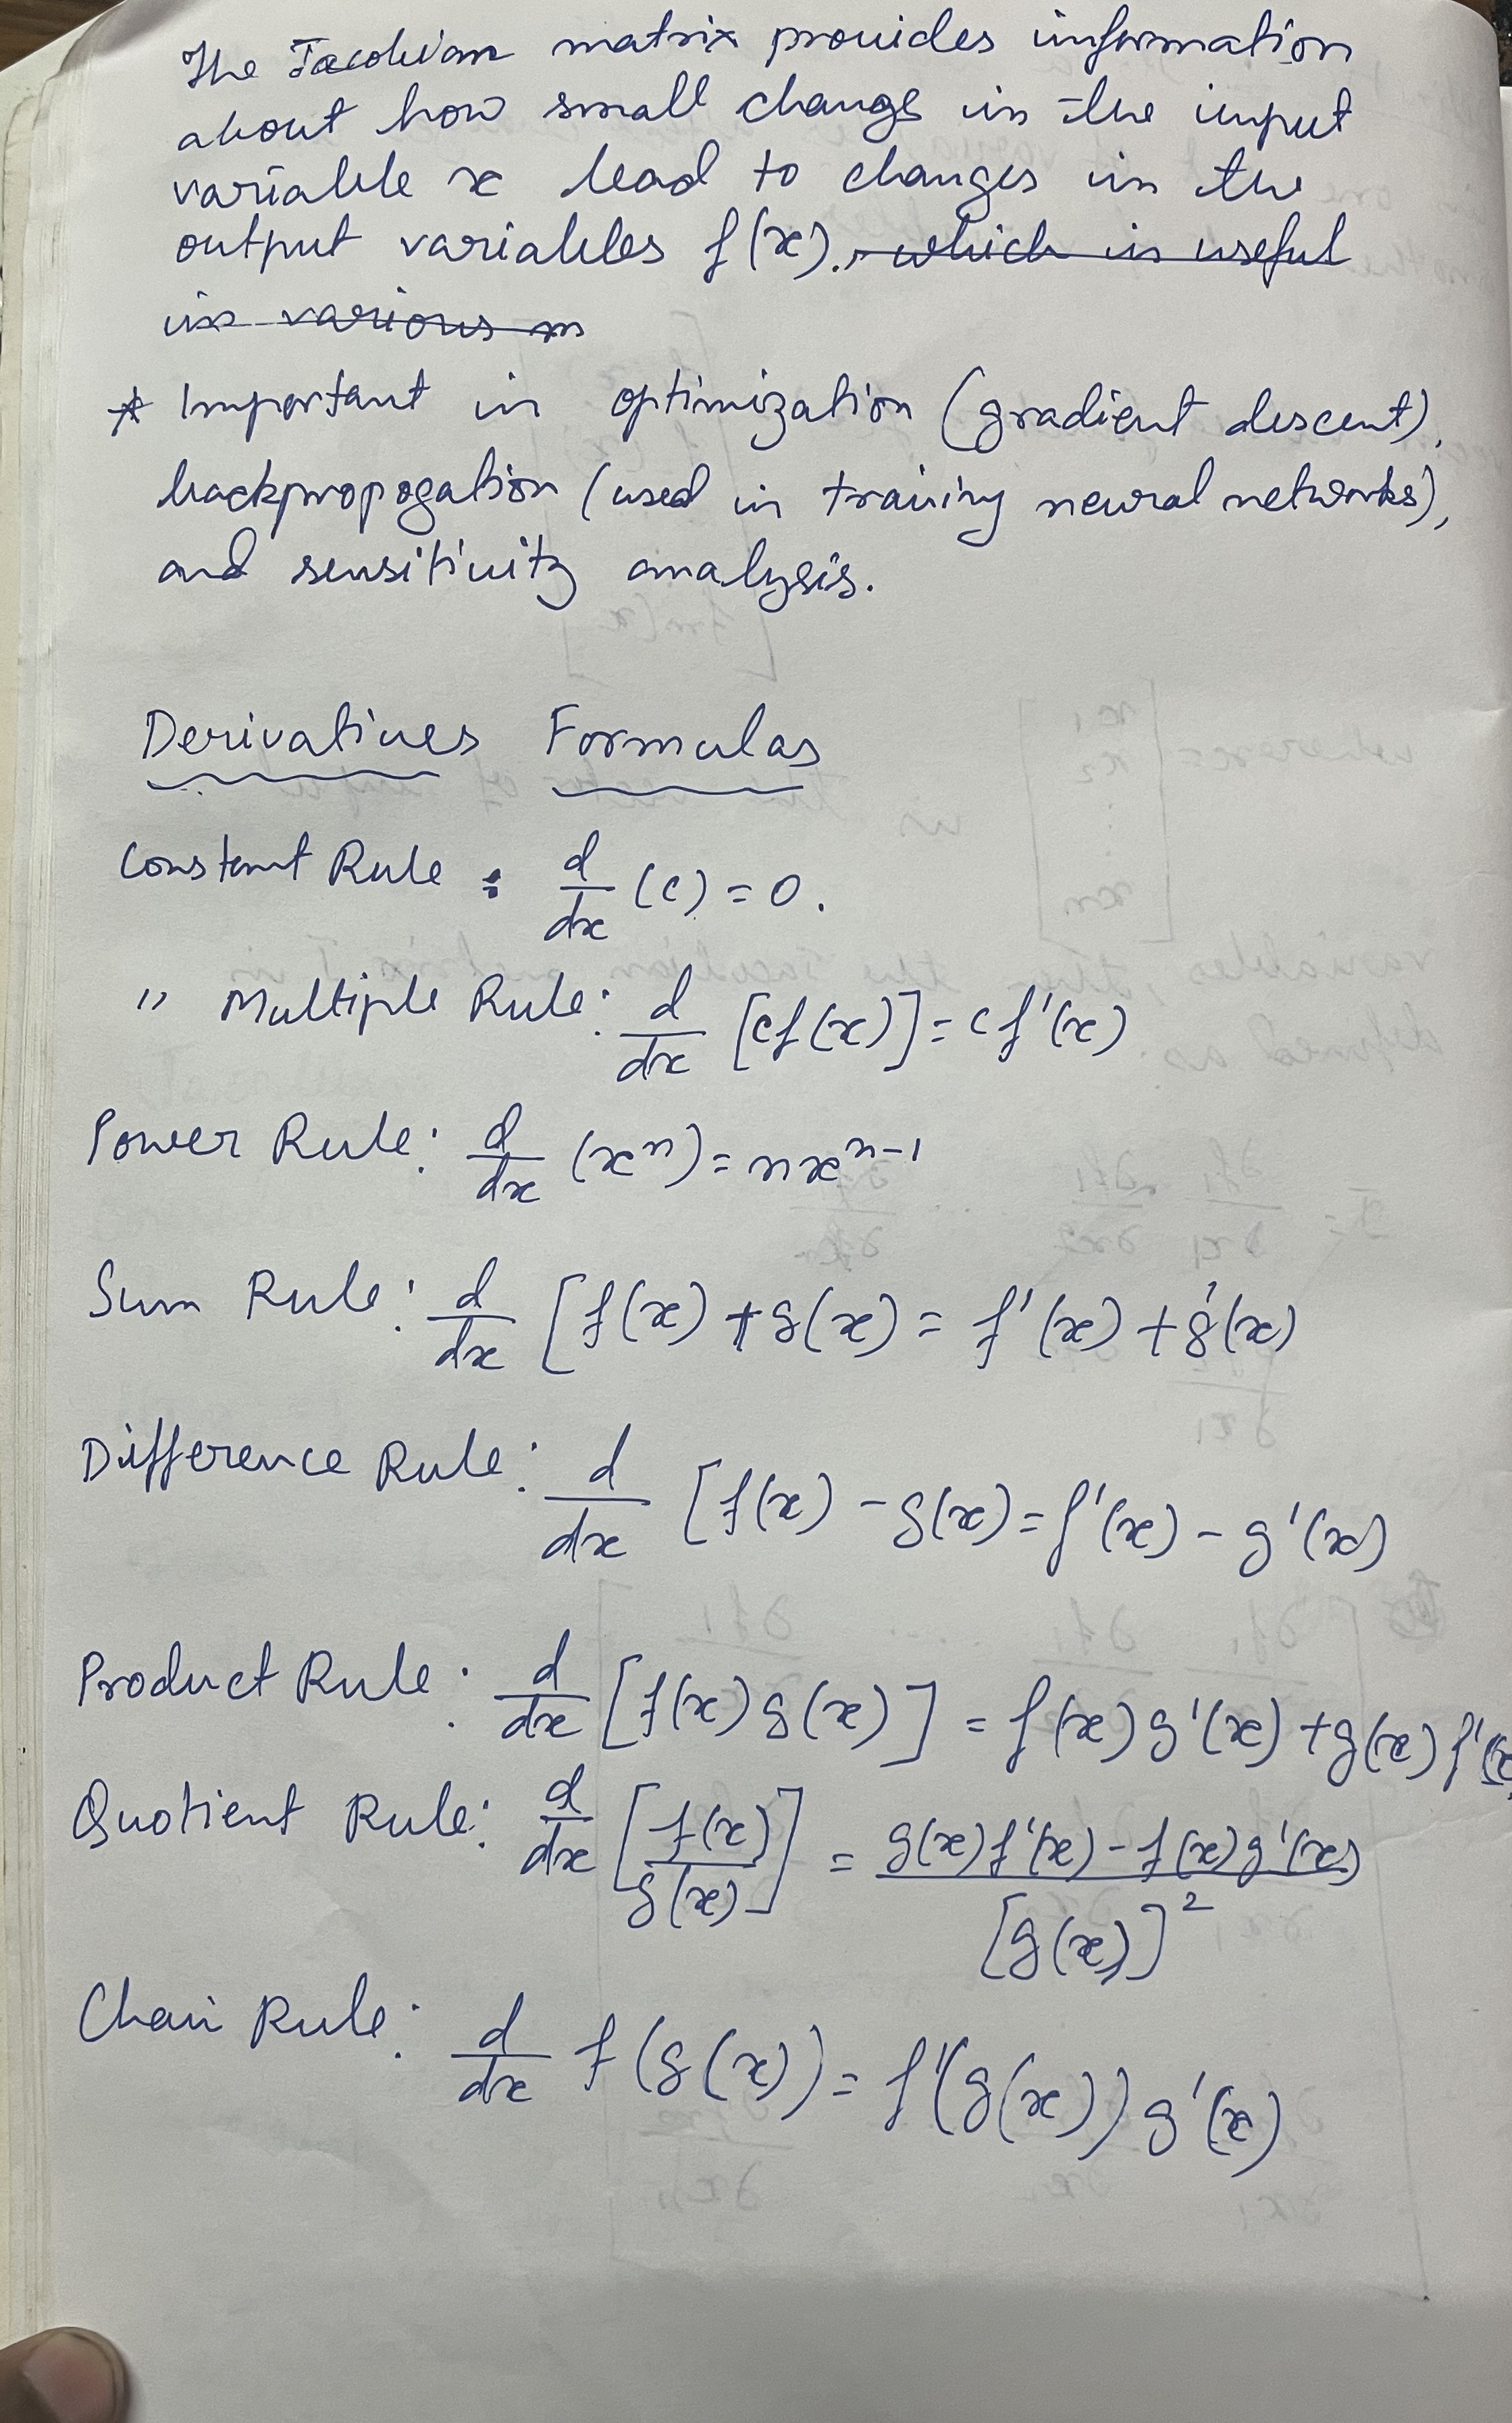 The Jacobian matrix provides information
about how small change in the input
variable x lead to changes in the
output variables f(x)., which is useful
in various m
* Important in optimization (gradient descent),
backpropogation (used in training neural networks),
and sensitivity analysis.
Derivatives Formulas
Constant Rule : d/dx (c) = 0.
" Multiple Rule: d/dx [cf(x)] = cf'(x)
Power Rule: d/dx (xⁿ) = nxⁿ⁻¹
Sum Rule: d/dx [f(x) + g(x) = f'(x) + g'(x)
Difference Rule: d/dx [f(x) - g(x) = f'(x) - g'(x)
Product Rule: d/dx [f(x) g(x)] = f(x) g'(x) + g(x) f'(x
Quotient Rule: d/dx [f(x)/g(x)] = g(x) f'(x) - f(x) g'(x) / [g(x)]²
Chain Rule: d/dx f(g(x)) = f'(g(x)) g'(x)